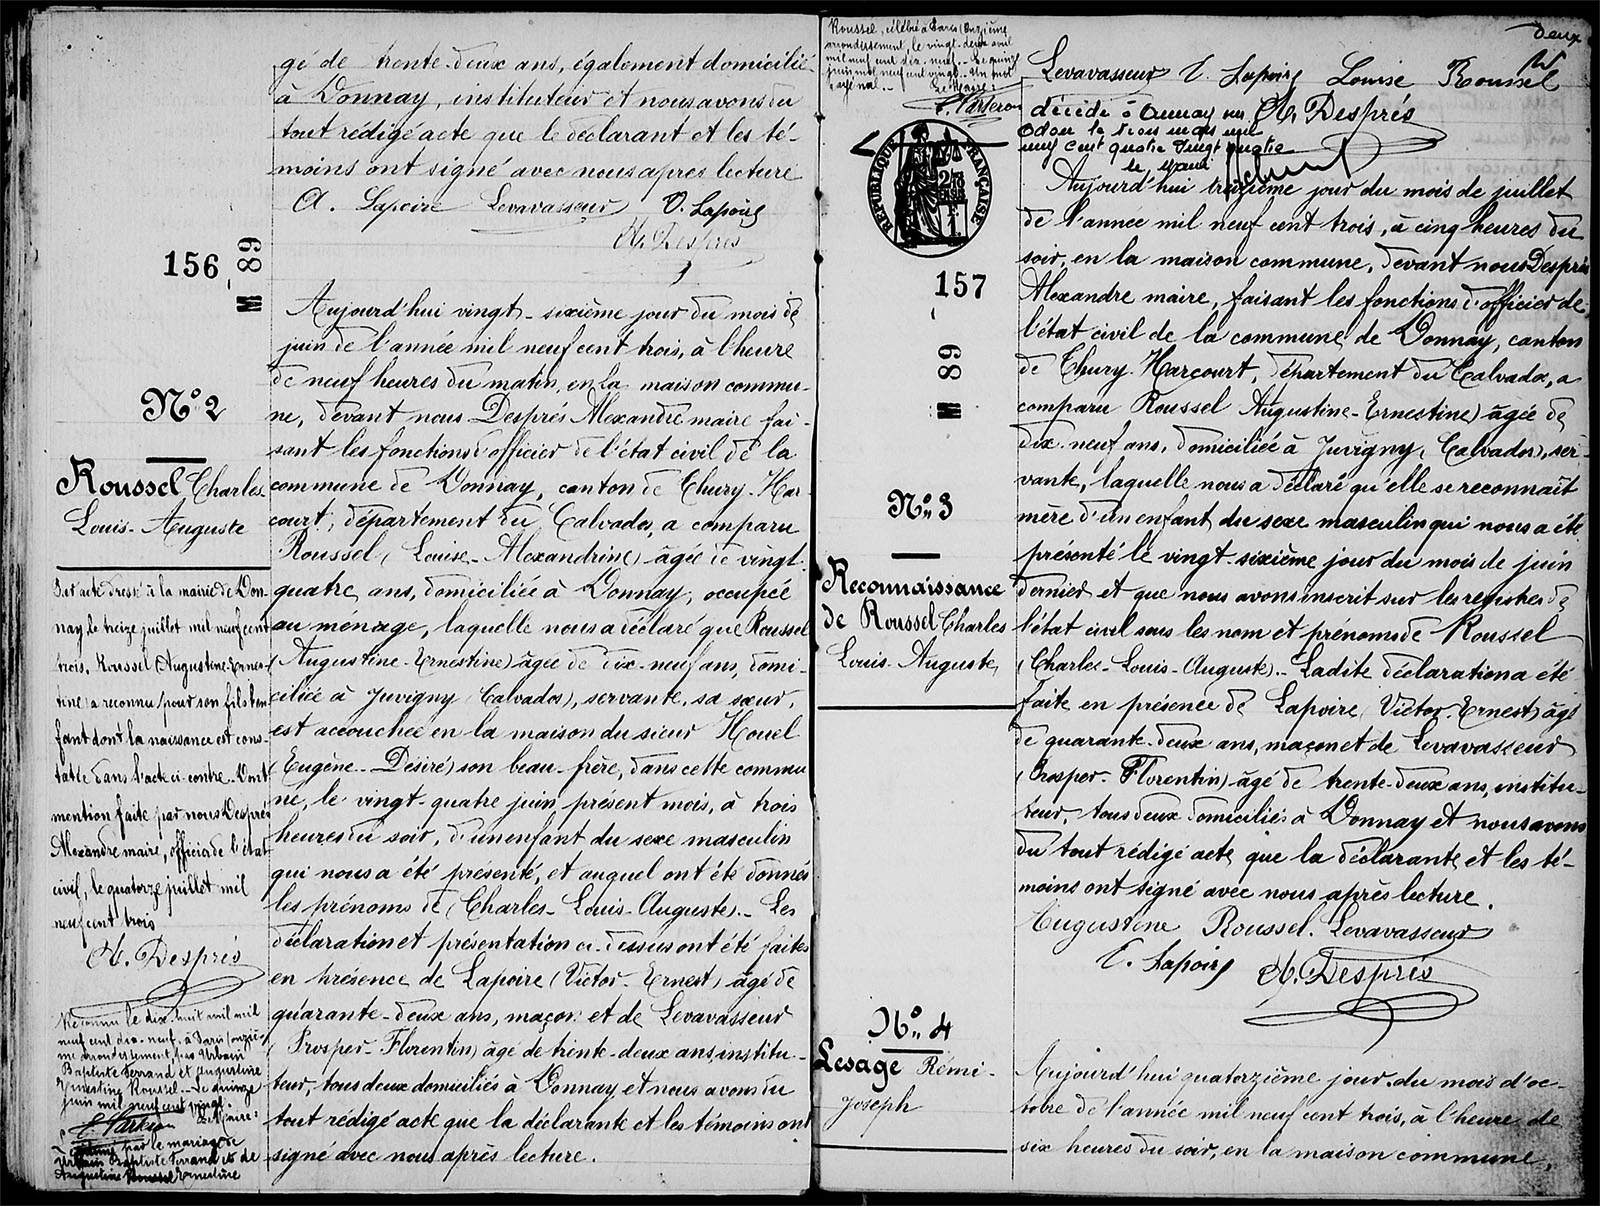 gé de trente-deux ans, également domicilié
à Donnay, instituteur et nous avons du
tout rédigé acte que le déclarant et les té-
moins ont signé avec nous après lecture
A. Lapoire Levavasseur V. Lapoire
A. Després
156 - 89 M
Nº 2
Roussel Charles
Louis-Auguste
Par acte dressé à la mairie de Don-
nay le treize juillet mil neuf cent
trois, Roussel Augustine-Ernes-
tine a reconnu pour son fils l'en-
fant dont la naissance est cons-
tatée dans l'acte ci-contre. Dont
mention faite par nous Després
Alexandre maire, officier de l'état
civil, le quatorze juillet mil
neuf cent trois
A. Després
Reconnu le dix-huit avril mil
neuf cent dix-neuf, à Paris (onziè-
me arrondissement) par Urbain
Baptiste Ferrand et Augustine
Ernestine Roussel. Le quinze
juin mil neuf cent vingt.
Le Maire:
par le mariage de
Urbain Baptiste Ferrand et de
Augustine Roussel Ernestine
Aujourd'hui vingt-sixième jour du mois de
juin de l'année mil neuf cent trois, à l'heure
de neuf heures du matin, en la maison commu-
ne, devant nous Després Alexandre maire fai-
sant les fonctions d'officier de l'état civil de la
commune de Donnay, canton de Thury-Har-
court, département du Calvados, a comparu
Roussel (Louise-Alexandrine) âgée de vingt-
quatre ans, domiciliée à Donnay, occupée
au ménage, laquelle nous a déclaré que Roussel
(Augustine-Ernestine) âgée de dix-neuf ans, domi-
ciliée à Juvigny (Calvados), servante, sa sœur,
est accouchée en la maison du sieur Houel
(Eugène-Désiré) son beau-frère, dans cette commu
ne, le vingt-quatre juin présent mois, à trois
heures du soir, d'un enfant du sexe masculin
qui nous a été présenté, et auquel ont été donnés
les prénoms de (Charles-Louis-Auguste).- Les
déclaration et présentation ci-dessus ont été faites
en présence de Lapoire (Victor-Ernest) âgé de
quarante-deux ans, maçon et de Levavasseur
(Prosper-Florentin) âgé de trente-deux ans, institu-
teur, tous deux domiciliés à Donnay, et nous avons du
tout rédigé acte que la déclarante et les témoins ont
signé avec nous après lecture.
Roussel, célébré à Paris (Onzième
arrondissement, le vingt-deux avril
mil neuf cent dix-neuf. - Le quinze
juin mil neuf cent vingt. Un mot
rayé nul. -
Le Maire:
RÉPUBLIQUE FRANÇAISE
157 - 89 M
Nº 3
Reconnaissance
de Roussel Charles
Louis-Auguste
Nº 4
Lesage Rémi-
Joseph
deux
Levavasseur V. Lapoire Louise Roussel
A. Després
décédé à Aunay sur
Odon le trois mars mil
neuf cent quatre vingt quatre
le Maire
Aujourd'hui treizième jour du mois de juillet
de l'année mil neuf cent trois, à cinq heures du
soir, en la maison commune, devant nous Després
Alexandre maire, faisant les fonctions d'officier de
l'état civil de la commune de Donnay, canton
de Thury-Harcourt, département du Calvados, a
comparu Roussel (Augustine-Ernestine) âgée de
dix-neuf ans, domiciliée à Juvigny (Calvados), ser-
vante, laquelle nous a déclaré qu'elle se reconnaît
mère d'un enfant du sexe masculin qui nous a été
présenté le vingt-sixième jour du mois de juin
dernier et que nous avons inscrit sur les registres de
l'état civil sous les nom et prénoms de Roussel
(Charles-Louis-Auguste).- Ladite déclaration a été
faite en présence de Lapoire (Victor-Ernest) âgé
de quarante-deux ans, maçon et de Levavasseur
(Prosper-Florentin) âgé de trente-deux ans, institu-
teur, tous deux domiciliés à Donnay et nous avons
du tout rédigé acte que la déclarante et les té-
moins ont signé avec nous après lecture.
Augustine Roussel. Levavasseur
V. Lapoire A. Després
Aujourd'hui quatorzième jour du mois d'oc-
tobre de l'année mil neuf cent trois, à l'heure de
six heures du soir, en la maison commune,